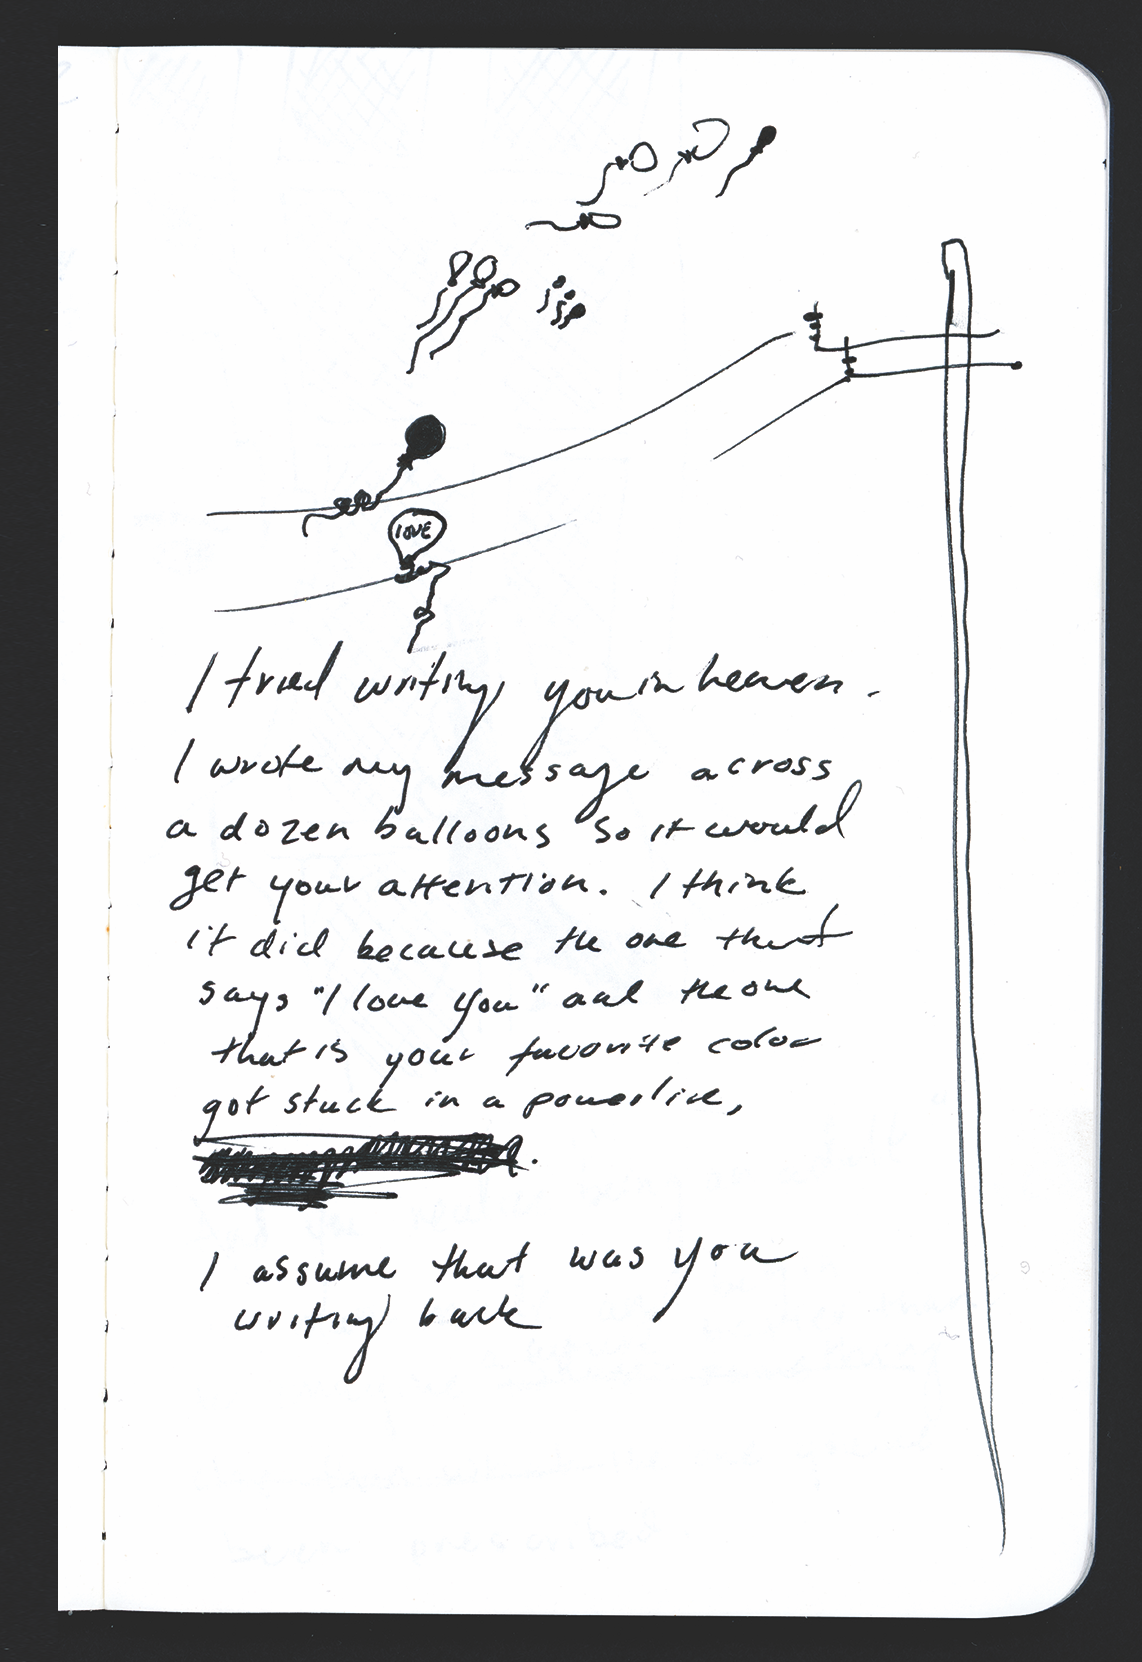 LOVE
I tried writing you in heaven.
I wrote my message across
a dozen balloons so it would
get your attention. I think
it did because the one that
says "I love you" and the one
that is your favorite color
got stuck in a powerline,
.
I assume that was you
writing back